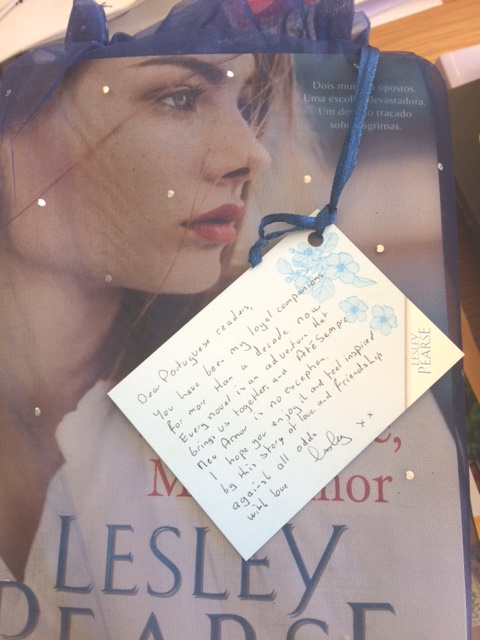 Dois opostos.
Uma devastadora.
Um traçado
Dear Portuguese readers,
You have been my loyal companions
for more than a decade now
Every novel is an adventure that
brings us together, and Até Sempre
Meu Amor is no exception.
I hope you enjoy it and feel inspired
by this story of love and friendship
against all odds
with love Lesley x x
LESLEY
PEARSE
LESLEY
PEARSE